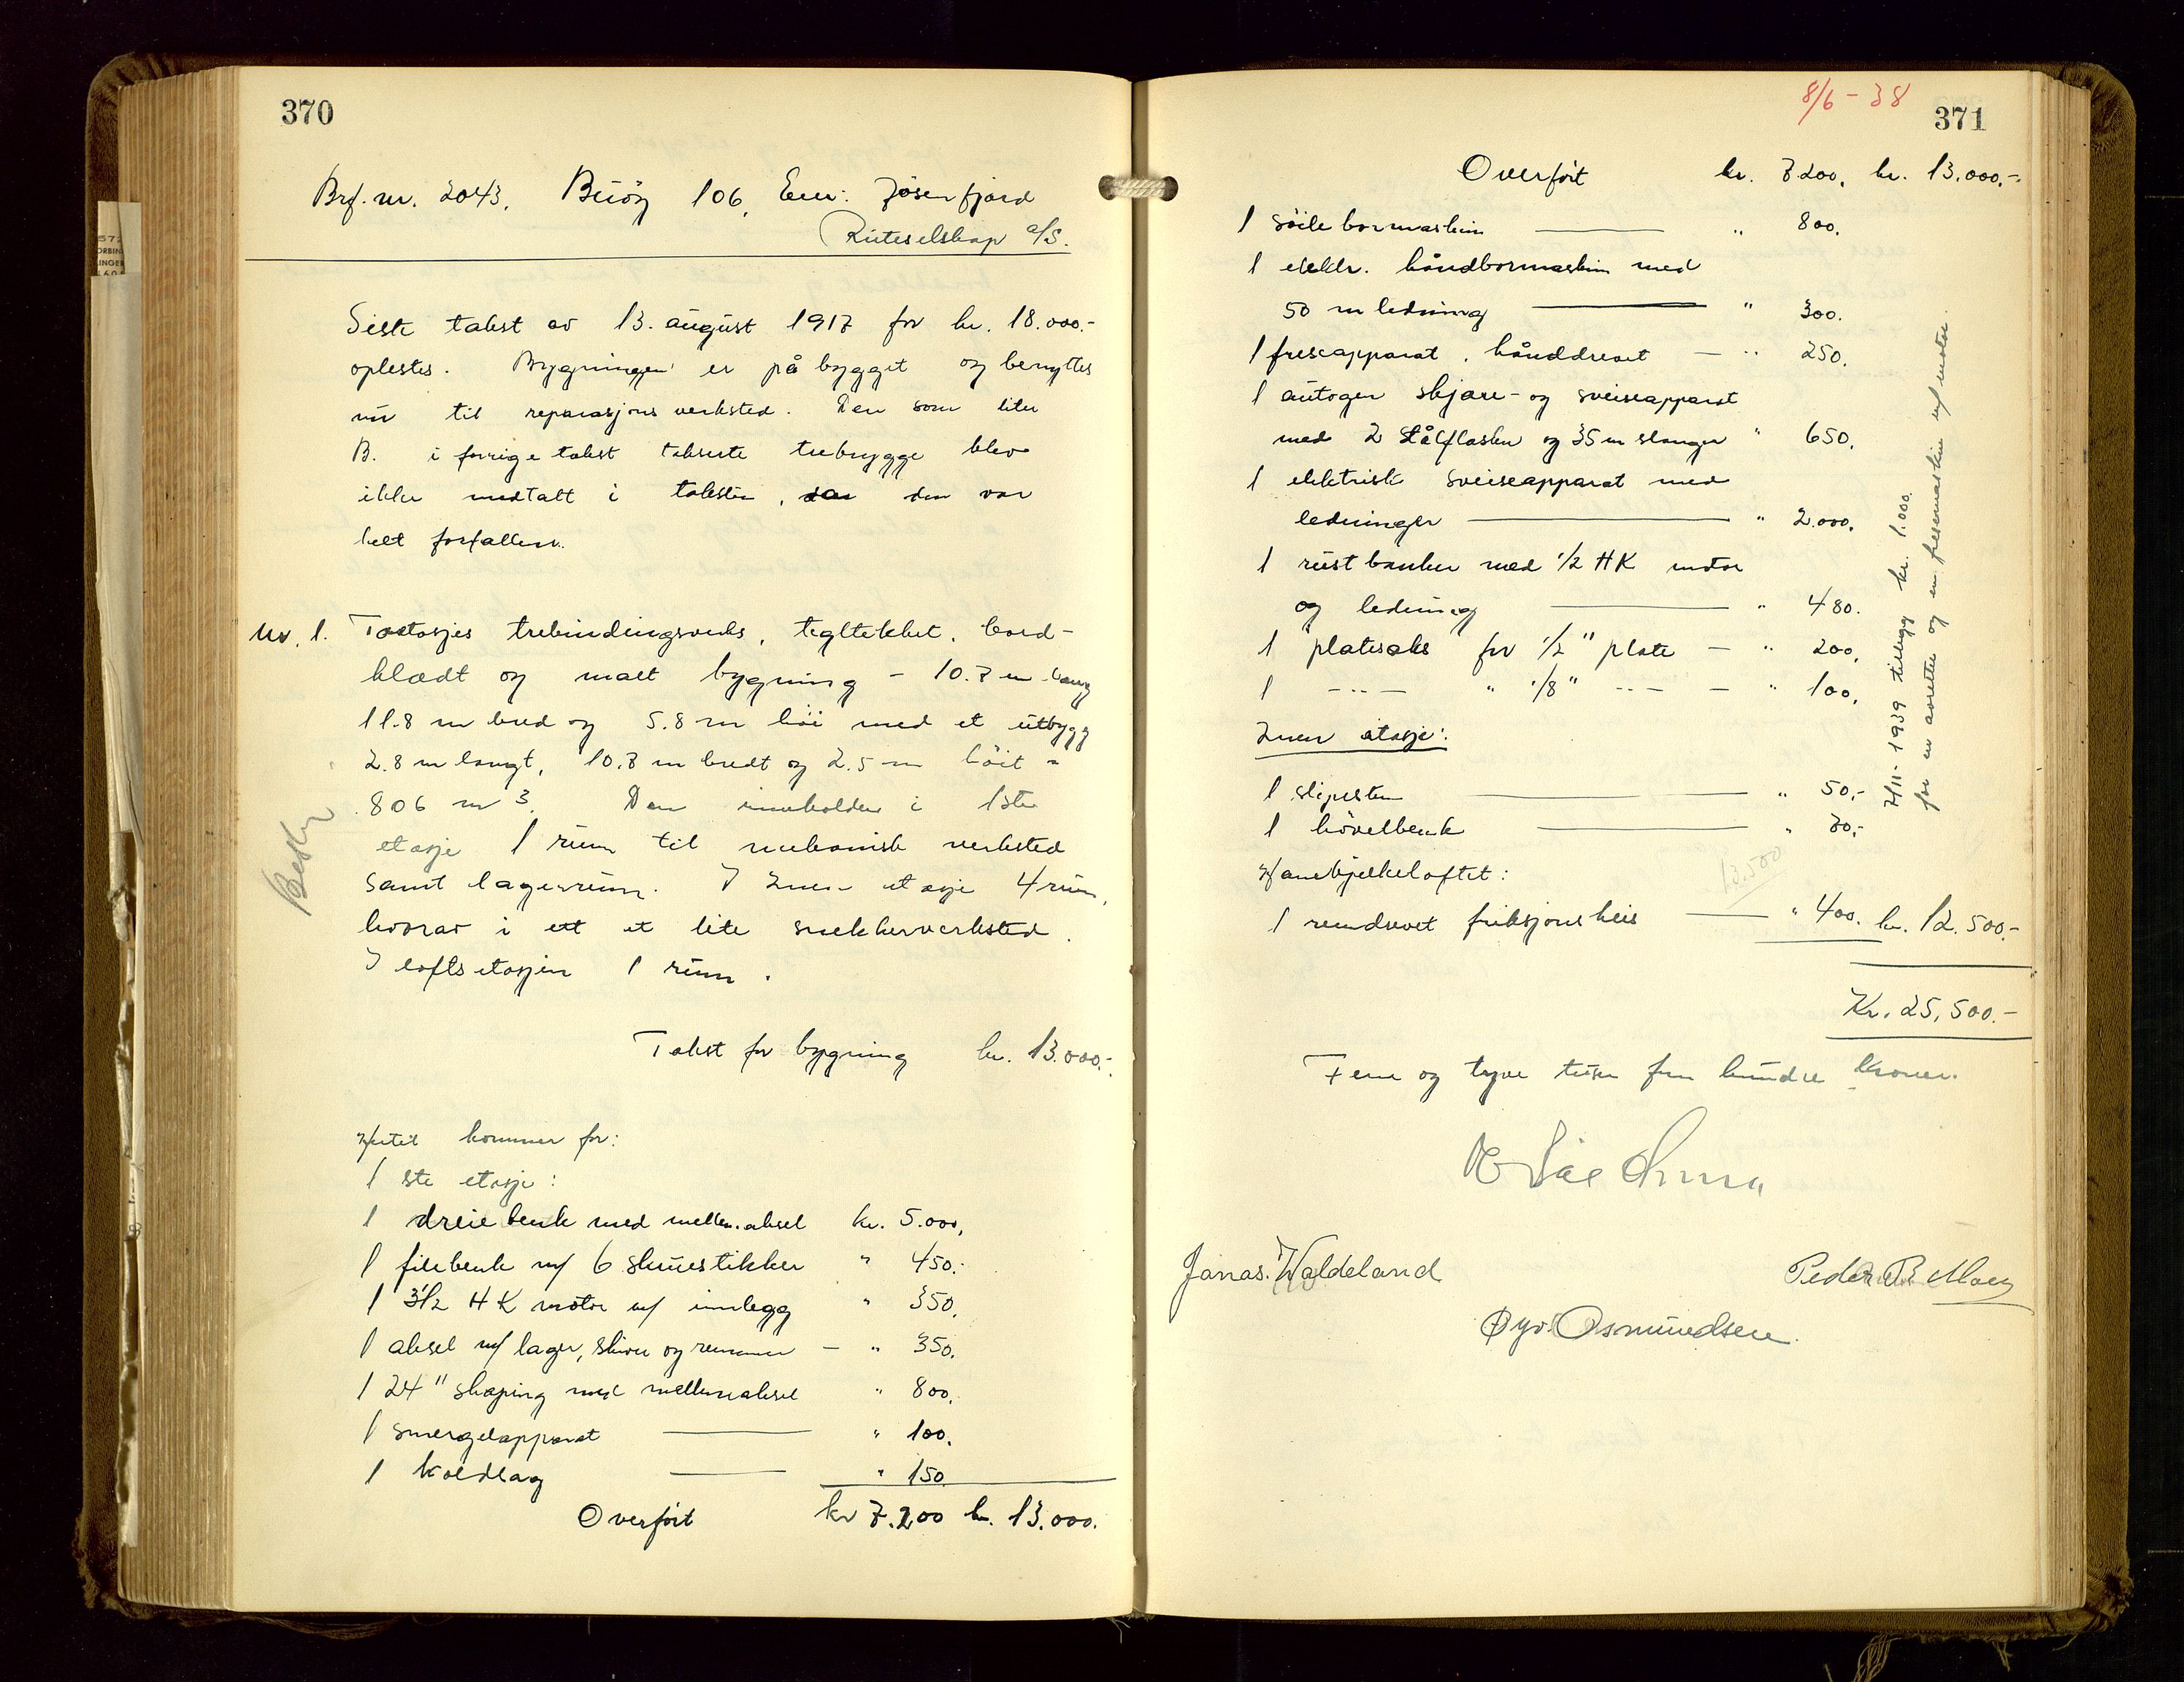 370
Brf. nr. 2043. Buöy 106, Eier: Jösenfjord
Ruteselskap A/S.
Siste takst av 13. august 1917 for kr. 18.000.-
oplestes. Bygningen er på bygget og benyttes
nu til reparasjons verksted. Den som liter
B. i forrige takst takserte trebrygge blev
ikke medtatt i taksten, da den var
helt forfallen.
Nr. 1. Toetasjes trebindingsverks, tegltekket, bord-
klædt og malt bygning - 10.7 m lang
11.8 m bred og 5.8 m höi med et utbygg
2.8 m langt, 10.7 m bredt og 2.5 m höit =
806 m³. Den inneholder i 1ste
etasje 1 rum til mekanisk verksted
samt lagerrum. I 2nen etasje 4 rum,
hvorav i ett et lite snekkerverksted.
I loftsetasjen 1 rum.
Takst for bygning kr. 13.000.-
Hertil kommer for:
1 ste etasje:
1 dreiebenk med mellemaksel kr. 5.000,
1 filebenk m/ 6 skruestikker " 450.-
1 3½ HK motor m/ innlegg " 350.
1 aksel m/ lager, skiver og remmer - " 350.
1 24" shaping med mellemaksel " 800.
1 smergelapparat " 100.
1 koldsag " 150
Overfört kr 7.200 kr. 13.000.
8/6 - 38
371
Overfört kr. 7.200, kr. 13.000.-
1 söileboremaskin " 800.
1 elektr. håndbormaskin med
50 m ledning " 300.
1 freseapparat, hånddrevet - " 250.
1 autogen skjære- og sveiseapparat
med 2 stålflasker og 35 m slanger " 650.
1 elektrisk sveiseapparat med
ledninger " 2.000.
1 rustbanker med ½ HK motor
og ledning " 480.
1 platesaks for ½" plate - " 200,
1 -"- " ⅛" -"- - " 100,
2nen etasje:
1 slipesten " 50.-
1 hövelbenk " 70.-
13.500
Hanebjelkeloftet:
1 remdrevet friksjonsheis " 400. kr. 12.500.-
Kr. 25,500.-
Fem og tyve tusen fem hundre kroner.
Jonas. Waldeland
Peder B. Moey
Øyv. Osmundsen.
7/11- 1939 tillegg kr. 1.000.
for en avretter og en fresemaskin m/ motor.